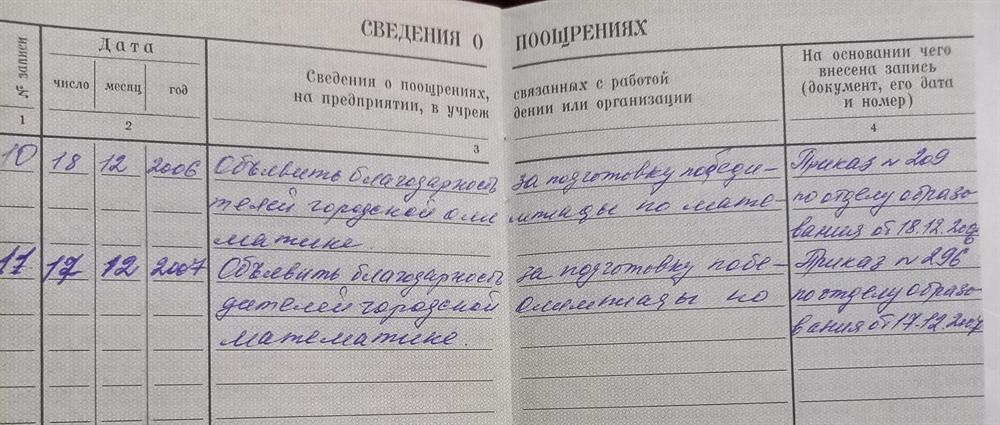 СВЕДЕНИЯ О ПООЩРЕНИЯХ
№ записи
Дата
число месяц год
Сведения о поощрениях, связанных с работой
на предприятии, в учреж дении или организации
На основании чего
внесена запись
(документ, его дата
и номер)
1 2 3 4
10 18 12 2006 Объявить благодарность за подготовку победи- Приказ № 209
телей городской оли мпиады по мате- по отделу образо
матике. вания от 18.12.2006
11 17 12 2007 Объявить благодарность за подготовку побе- Приказ № 296
дателей городской олимпиады по по отделу образо
математике. вания от 17.12.2007